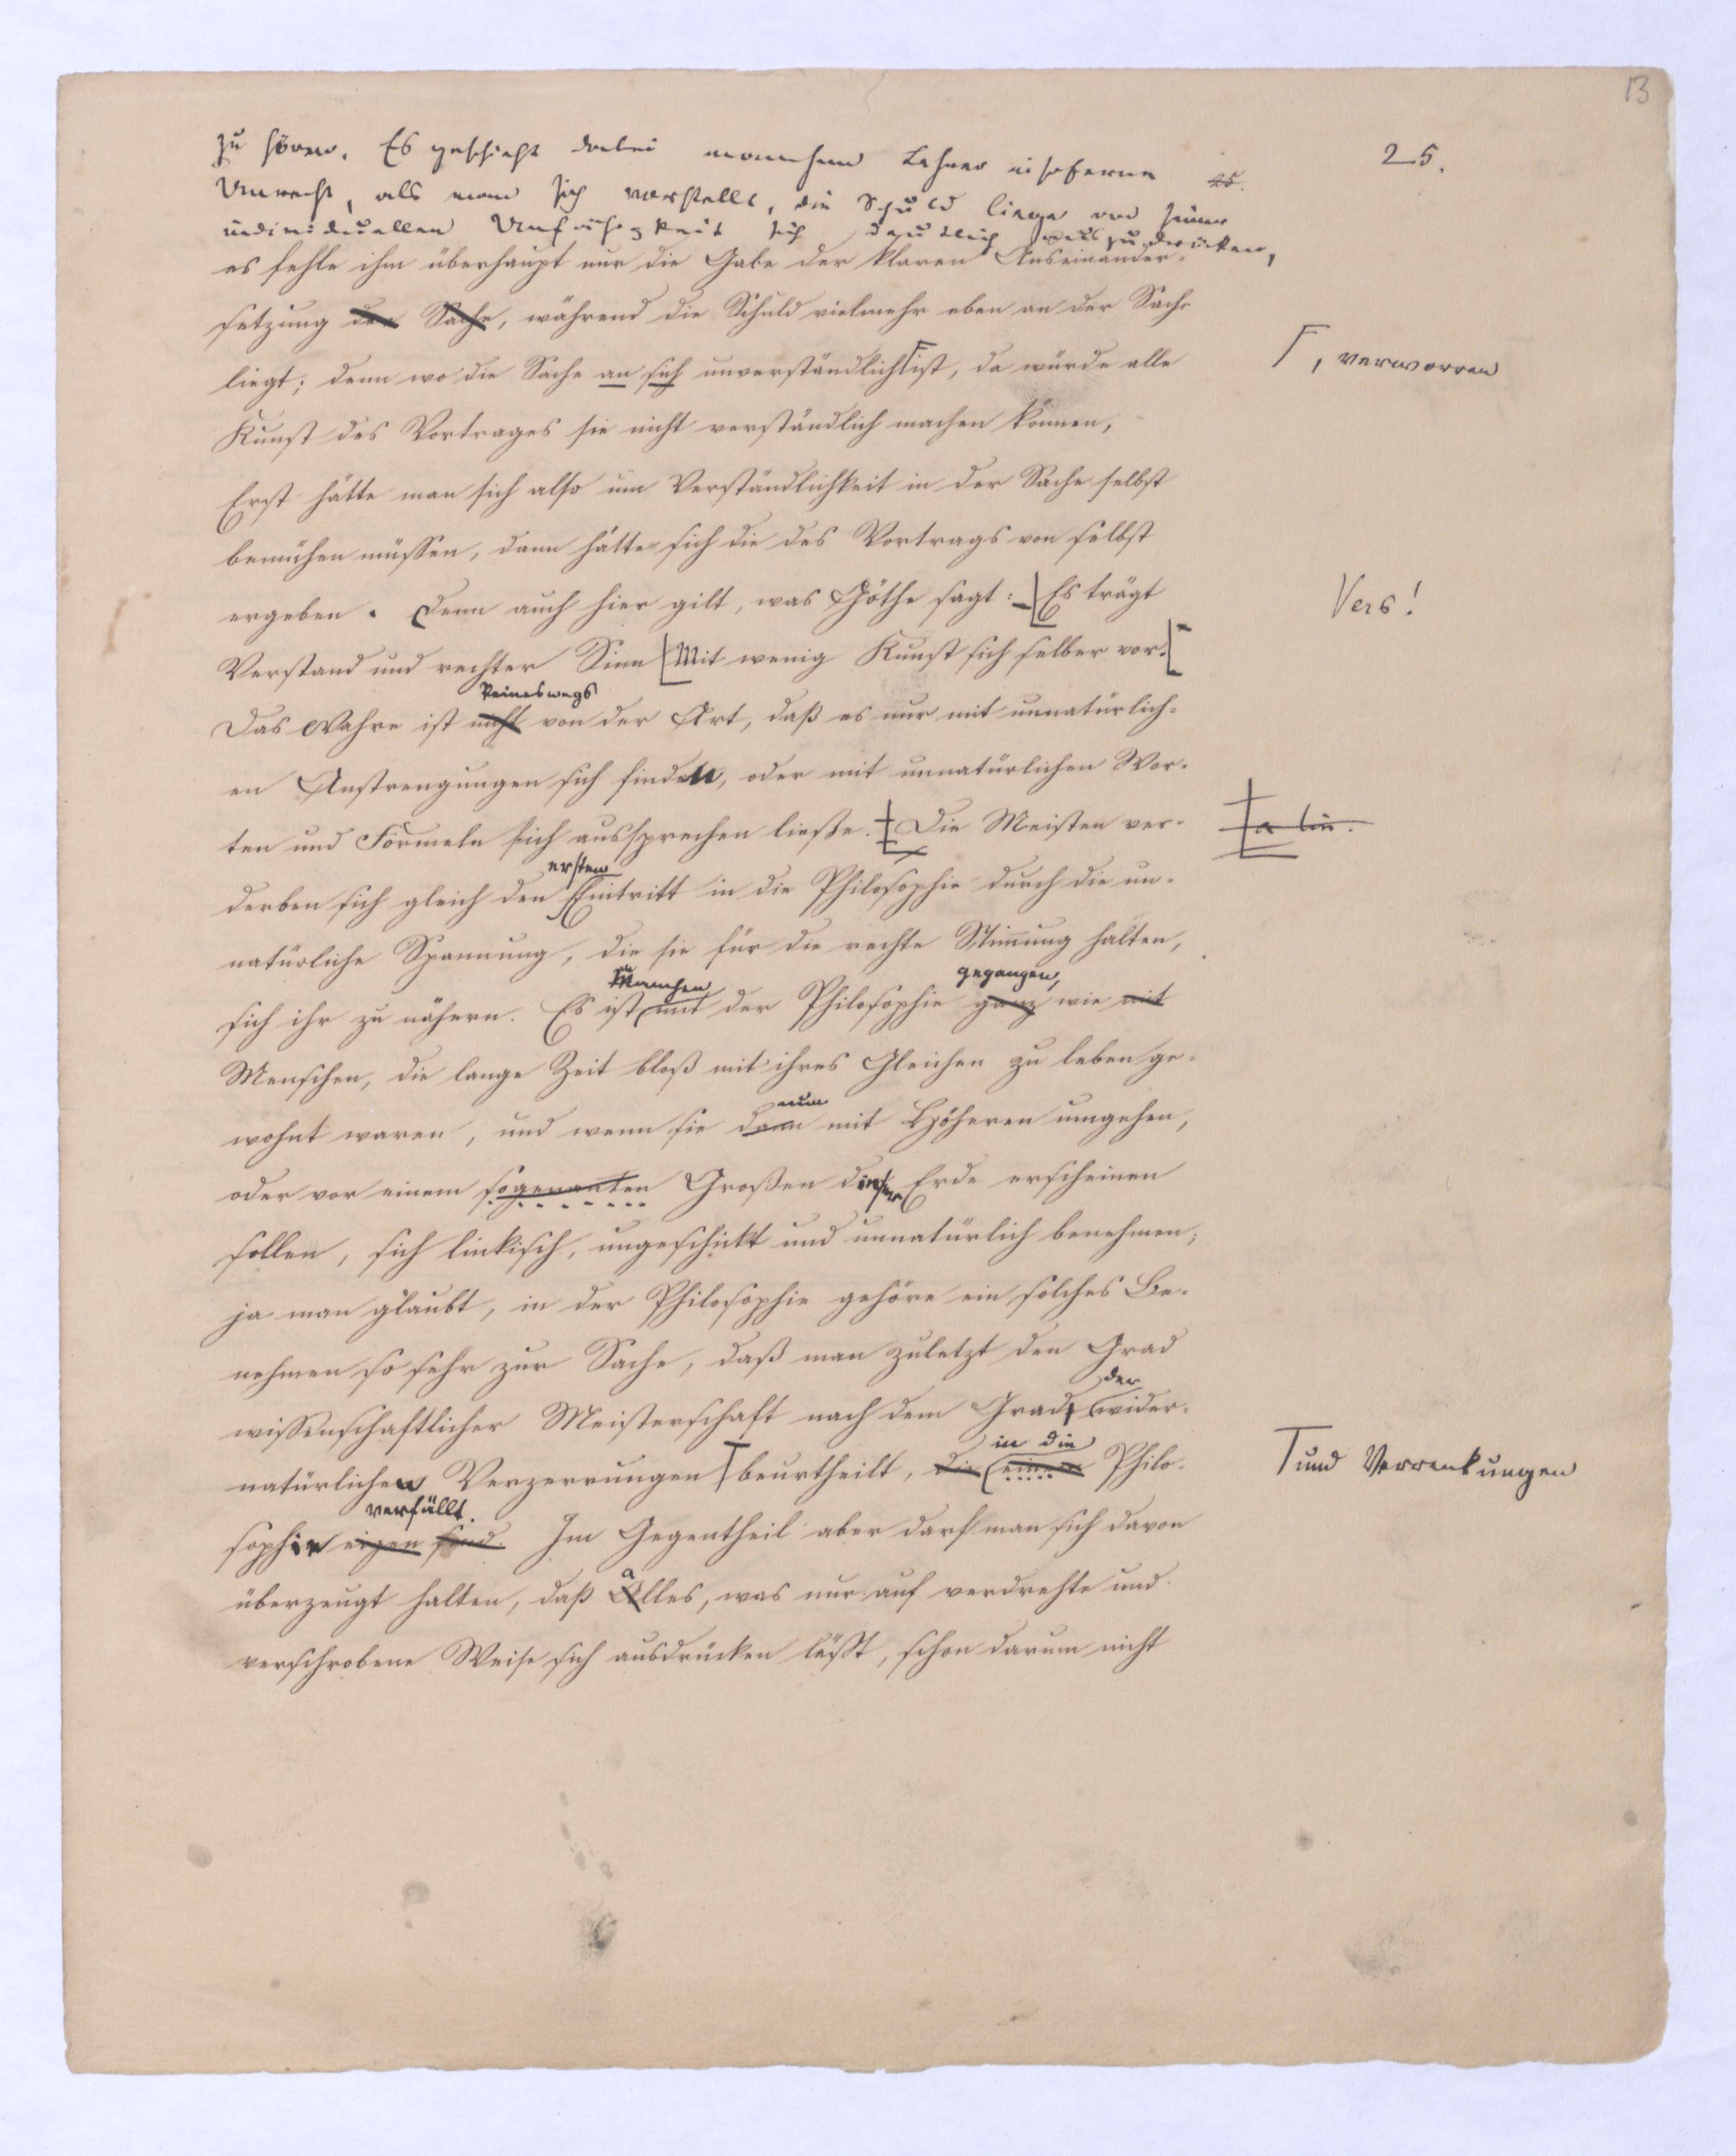 13
25.
zu hören. Es geschieht dabei manchem Lehrer insoferne 25.
Unrecht, als man sich vorstellt, die Schuld liege an seiner
individuellen Unfähigkeit sich deutlich auszudrücken,
es fehle ihm überhaupt nur die Gabe der klaren Auseinander-
setzung der Sache, während die Schuld vielmehr eben an der Sache
liegt; denn wo die Sache an sich unverständlich ist, da würde alle
, verworren
Kunst des Vortrages sie nicht verständlich machen können,
Erst hätte man sich also um Verständlichkeit in der Sache selbst
bemühen müssen, dann hätte sich die des Vortrags von selbst
ergeben. Denn auch hier gilt, was Göthe sagt: – Es trägt
Vers!
Verstand und rechter Sinn Mit wenig Kunst sich selber vor.
keineswegs
Das Wahre ist nicht von der Art, daß es nur mit unnatürlich-
en Anstrengungen sich finden, oder mit unnatürlichen Wor-
ten und Formeln sich aussprechen ließe. Die Meisten ver-
a lin.
ersten
derben sich gleich den Eintritt in die Philosophie durch die un-
natürliche Spannung, die sie für die rechte Stimmung halten,
Manchen gegangen,
sich ihr zu nähern. Es ist mit der Philosophie ganz wie mit
Menschen, die lange Zeit bloß mit ihres Gleichen zu leben ge-
nun
wohnt waren, und wenn sie dann mit Höheren umgehen,
oder vor einem sogenannten Großen dieser Erde erscheinen
sollen, sich linkisch, ungeschickt und unnatürlich benehmen;
ja man glaubt, in der Philosophie gehöre ein solches Be-
nehmen so sehr zur Sache, daß man zuletzt den Grad
wissenschaftlicher Meisterschaft nach dem Grad wider-
der
natürlichen Verzerrungen beurtheilt, die einer Philo-
in die
und Verrenkungen
verfällt.
sophie eigen sind. Im Gegentheil aber darf man sich davon
überzeugt halten, daß alles, was nur auf verdrehte und
verschrobene Weise sich ausdrücken läßt, schon darum nicht